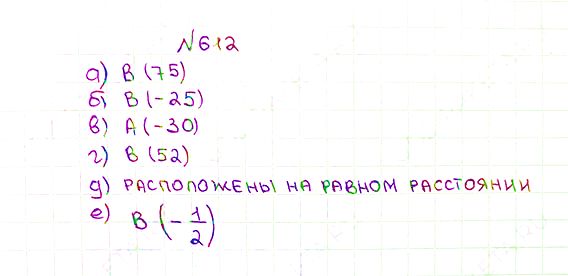 №612
а) В (75)
б) В (-25)
в) А (-30)
г) В (52)
д) РАСПОЛОЖЕНЫ НА РАВНОМ РАССТОЯНИИ
е) В (-1/2)